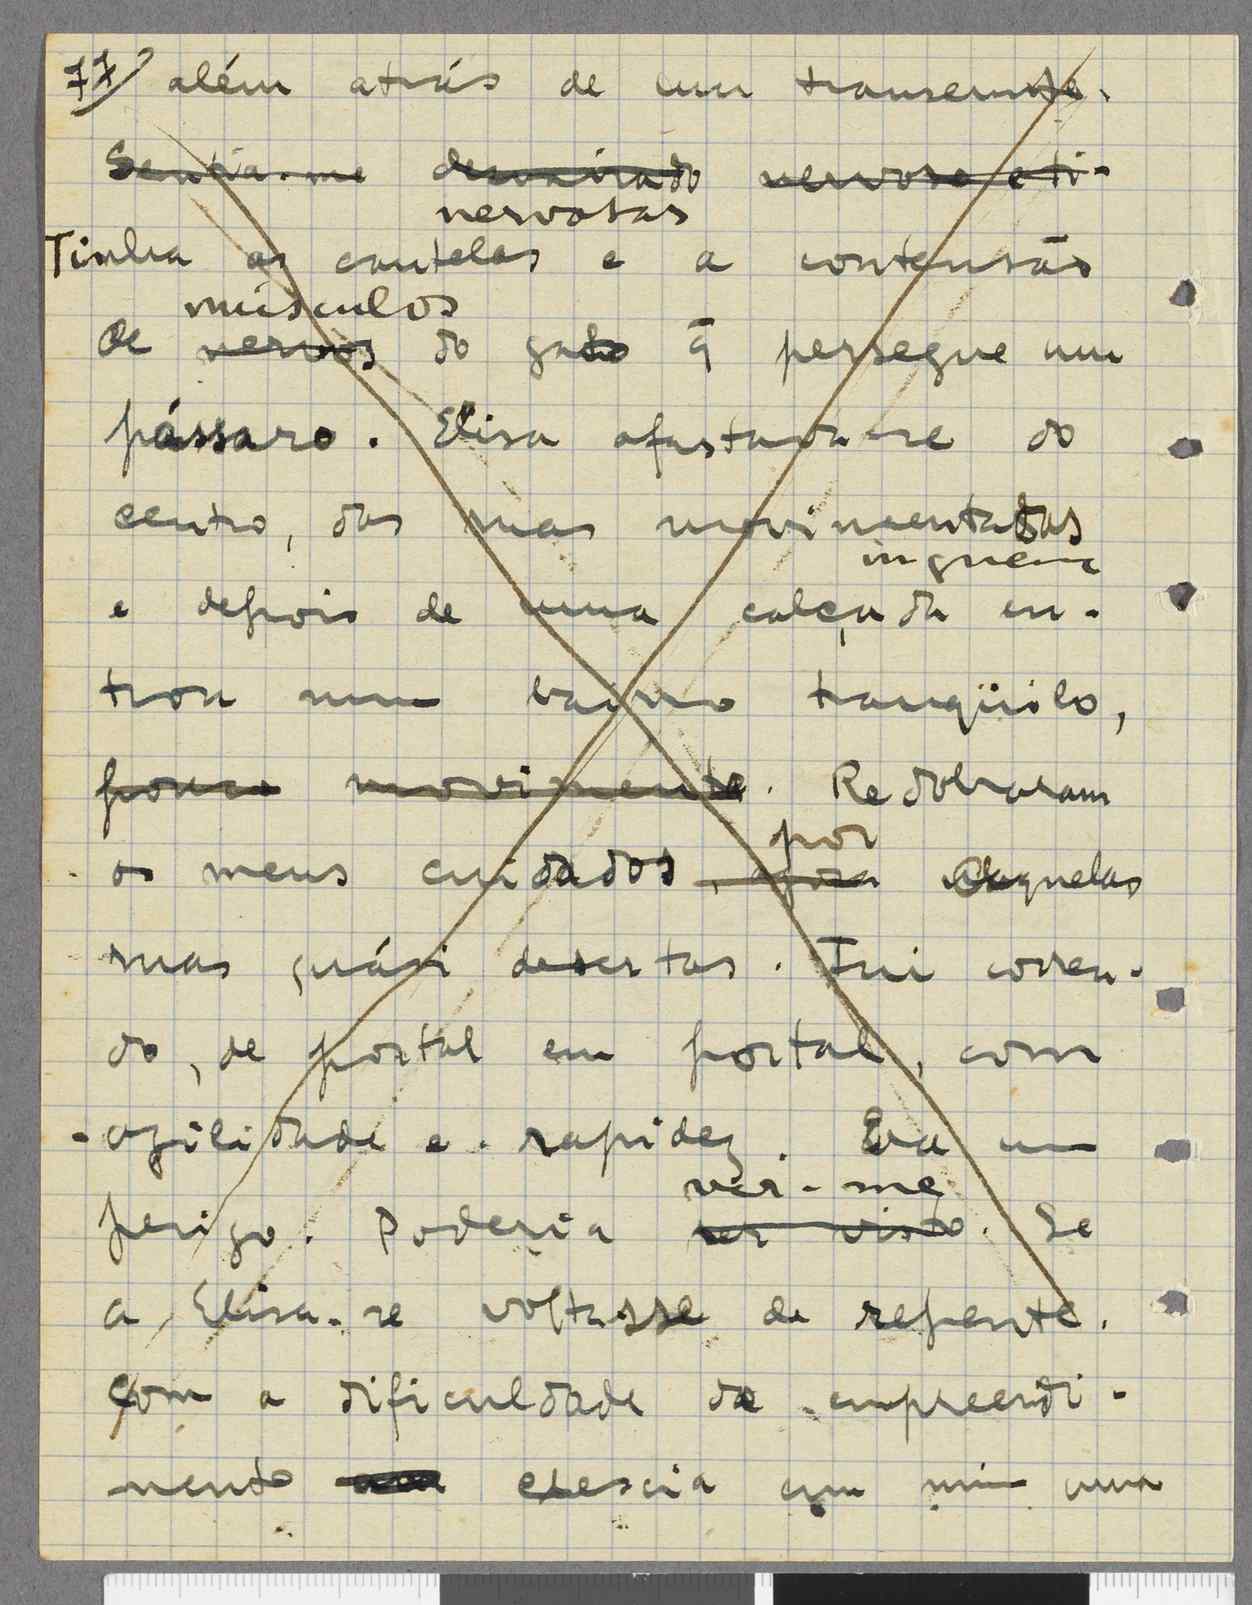 77 além atrás de um transeunte.
Sentia-me desvairado nervoso e ti-
nervosas
Tinha as cautelas e a contensão
músculos
de nervos do gato q̃ persegue um
pássaro. Elisa afastava-se do
centro, das ruas movimentadas
ingreme
e depois de uma calçada en-
trou num bairro tranqüilo,
pouco movimento. Redobraram
por
os meus cuidados, agora aquelas
ruas quási desertas. Fui corren-
do, de portal em portal, com
agilidade e rapidez. Era um
ver-me
perigo. Poderia ser visto. Se
a Elisa-se voltasse de repente.
Com a dificuldade da empreendi-
mento crescia em mim uma